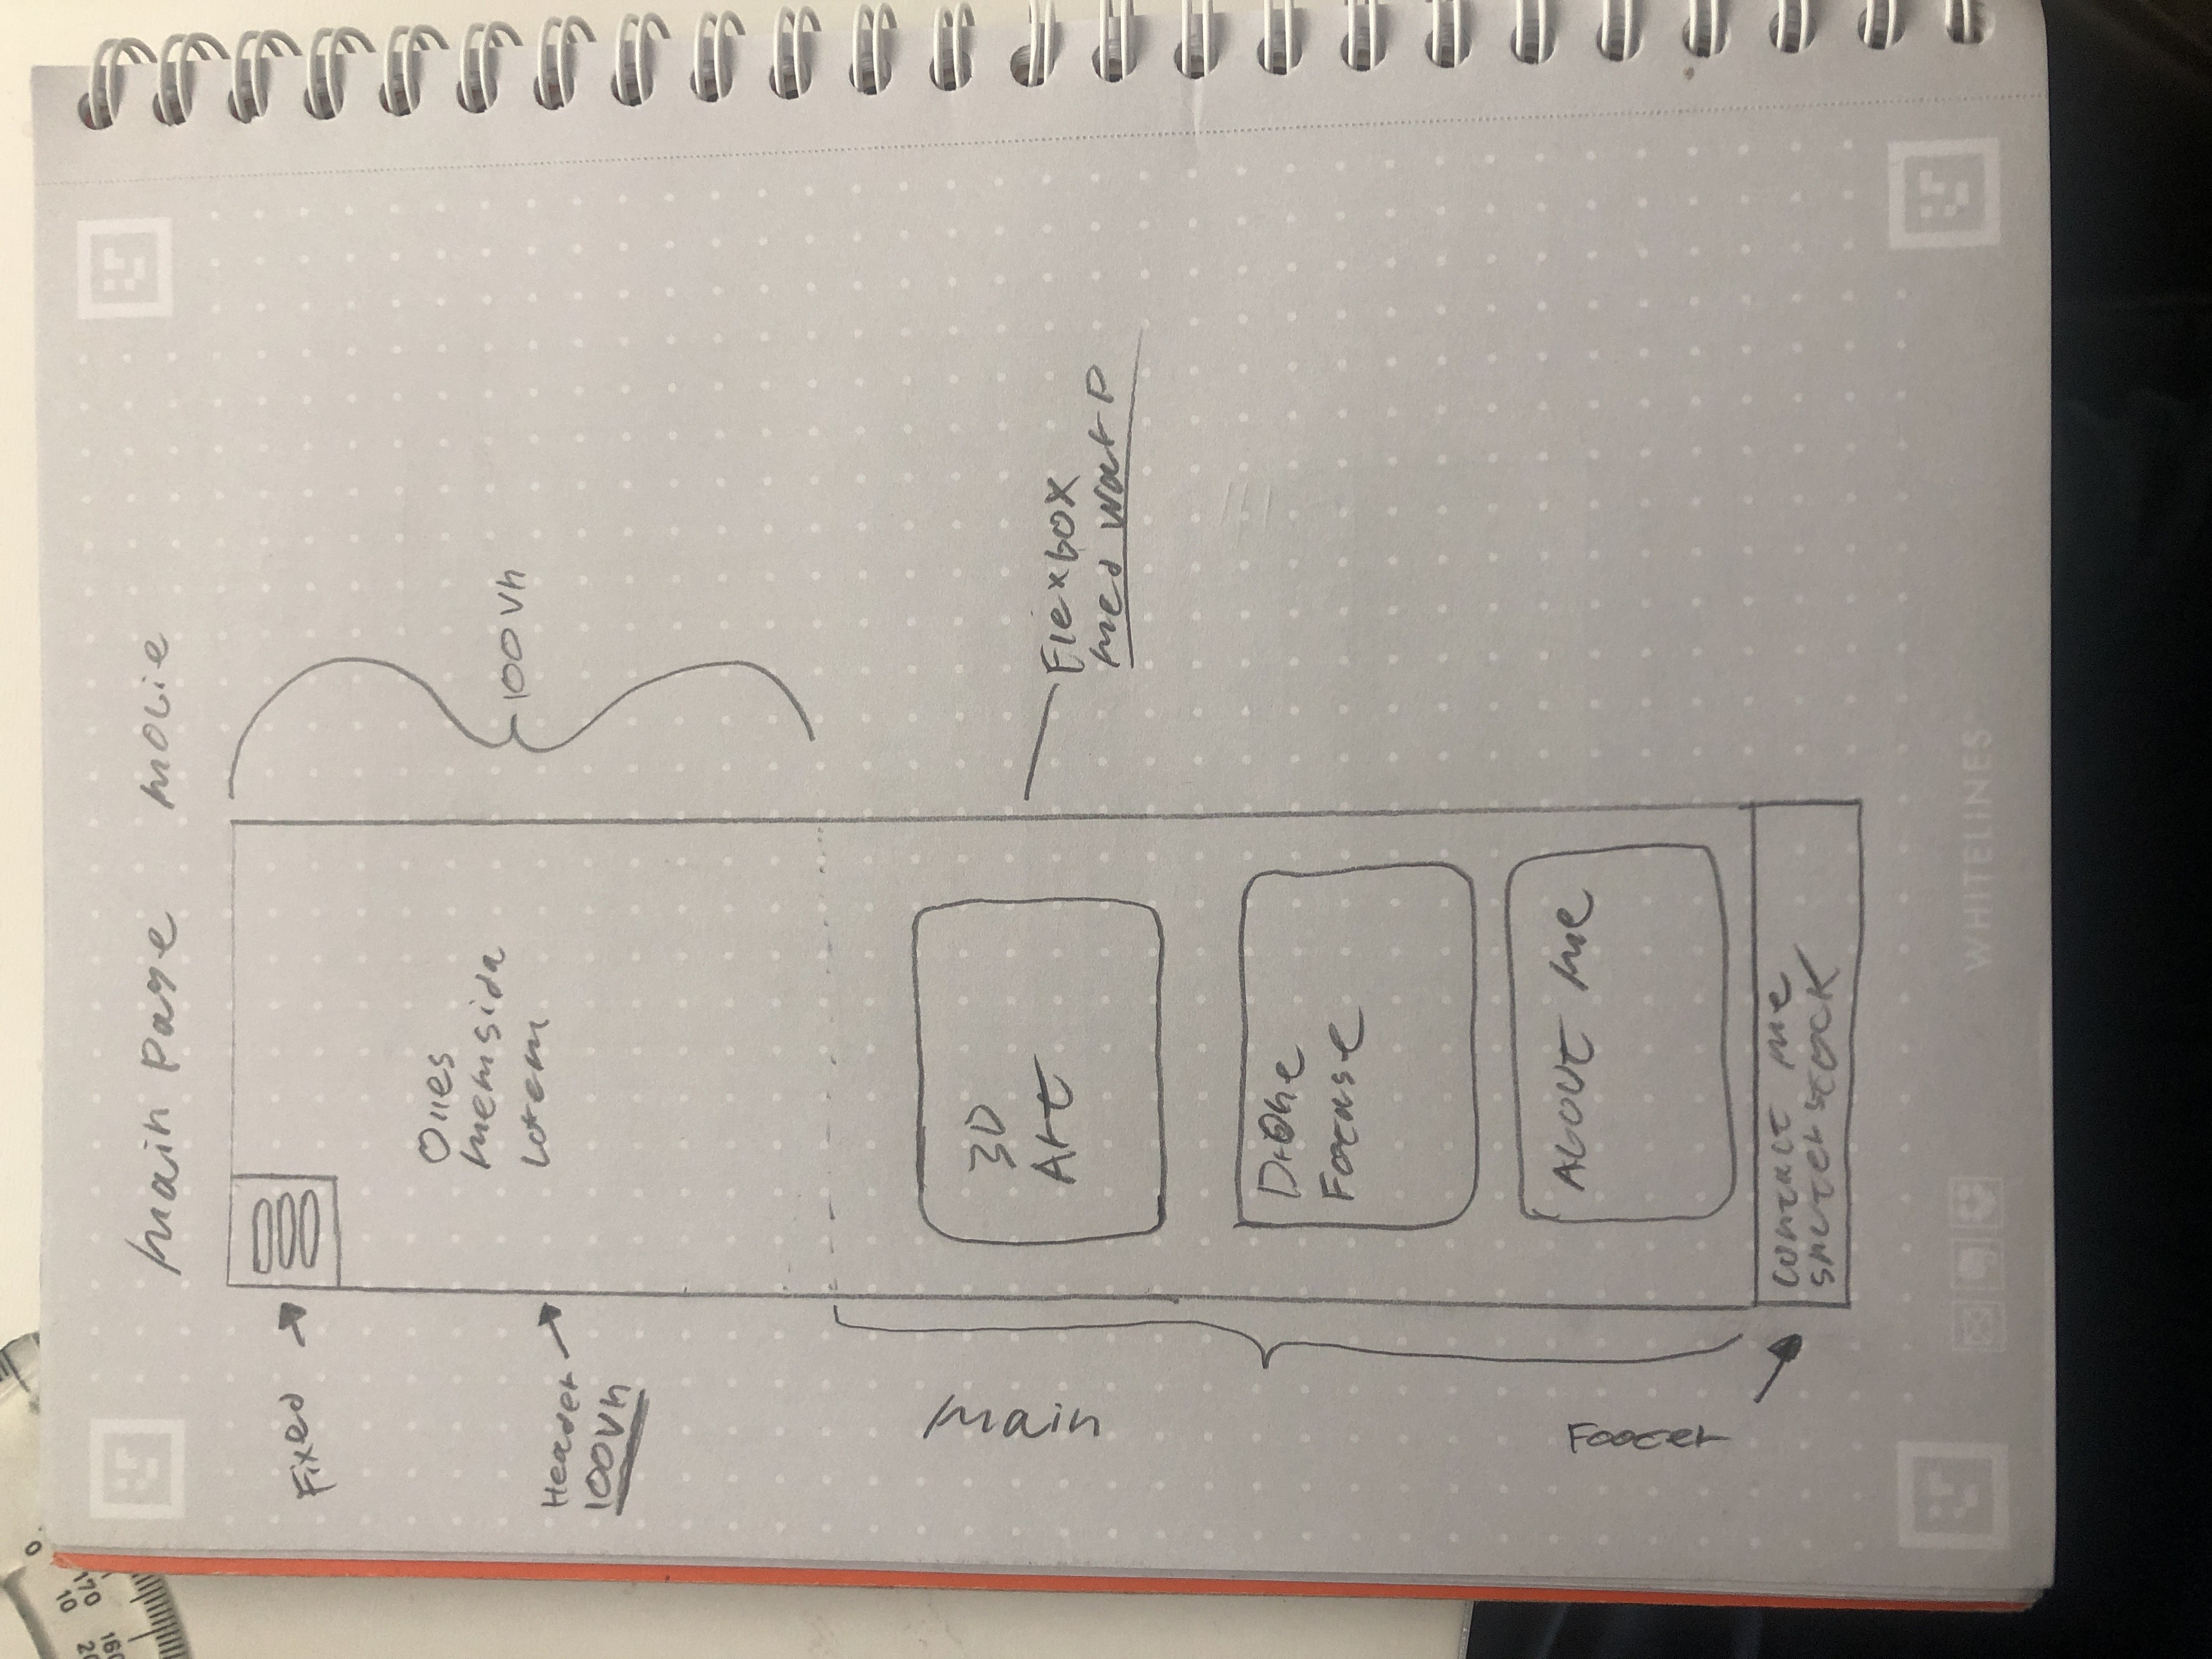 0
10
20
170
160
Main Page Mobie
Fixed
Olles
Hemsida
Lorem
Header
100Vh
100 Vh
Main
3D
Art
Flexbox
med warp
Drone
Fotase
About me
Footer
Contact me
Shuterstock
WHITELINES